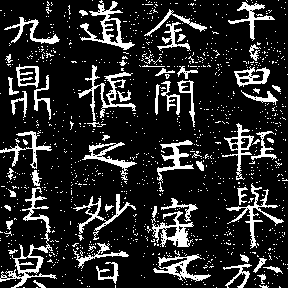 思輕舉於
金簡玉字之
道樞之妙
九鼎丹法莫